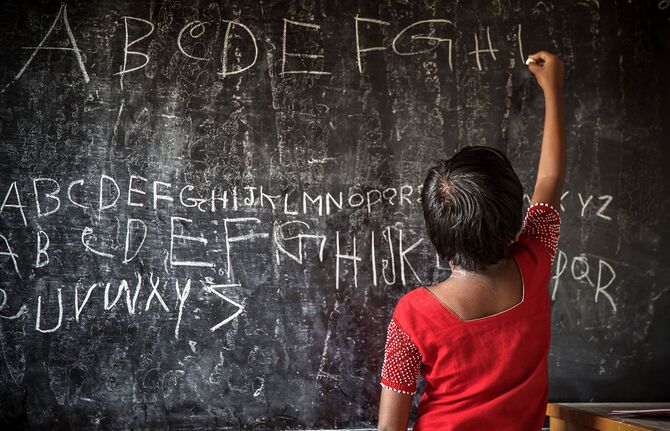 A B C D E F G H I
A B C D E F G H I J K L M N O P Q R Y Z
A B C D E F G H I J K P Q R
U V W X Y Z